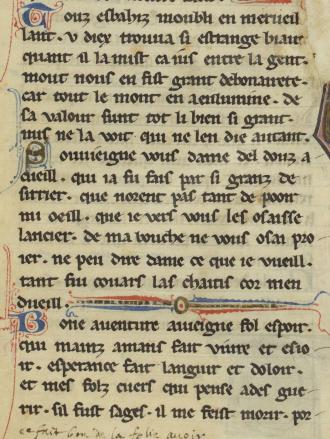 Touz esbahiz moubli en merueil
lant. v diex trouua si estrange biaut
quant il la mist ca ius entre la gent.
mout nous en fist grant debonairete.
car tout le mont en a enlumine. de
sa valour sunt tot li bien si grant.
nus ne la voit qui ne len die autant.
Souuieigne vous dame del douz a
cueill. qui ia fu fais par si granz de
sirrier. que norent pas tant de pooir
mi oeill. que ie vers vous les osaisse
lancier. de ma bouche ne vous osai pro
ier. ne peu dire dame ce que ie vueill.
tant fui couars las chaitis cor men
dueill.
Bone auenture auieigne fol espoir.
qui mainz amans fait viure et esio
ir. esperance fait languir et doloir.
et mes folz cuers qui pense ades gue
rir. sil fust sages. il me feist morir. por
ce fait bon de la folie auoir